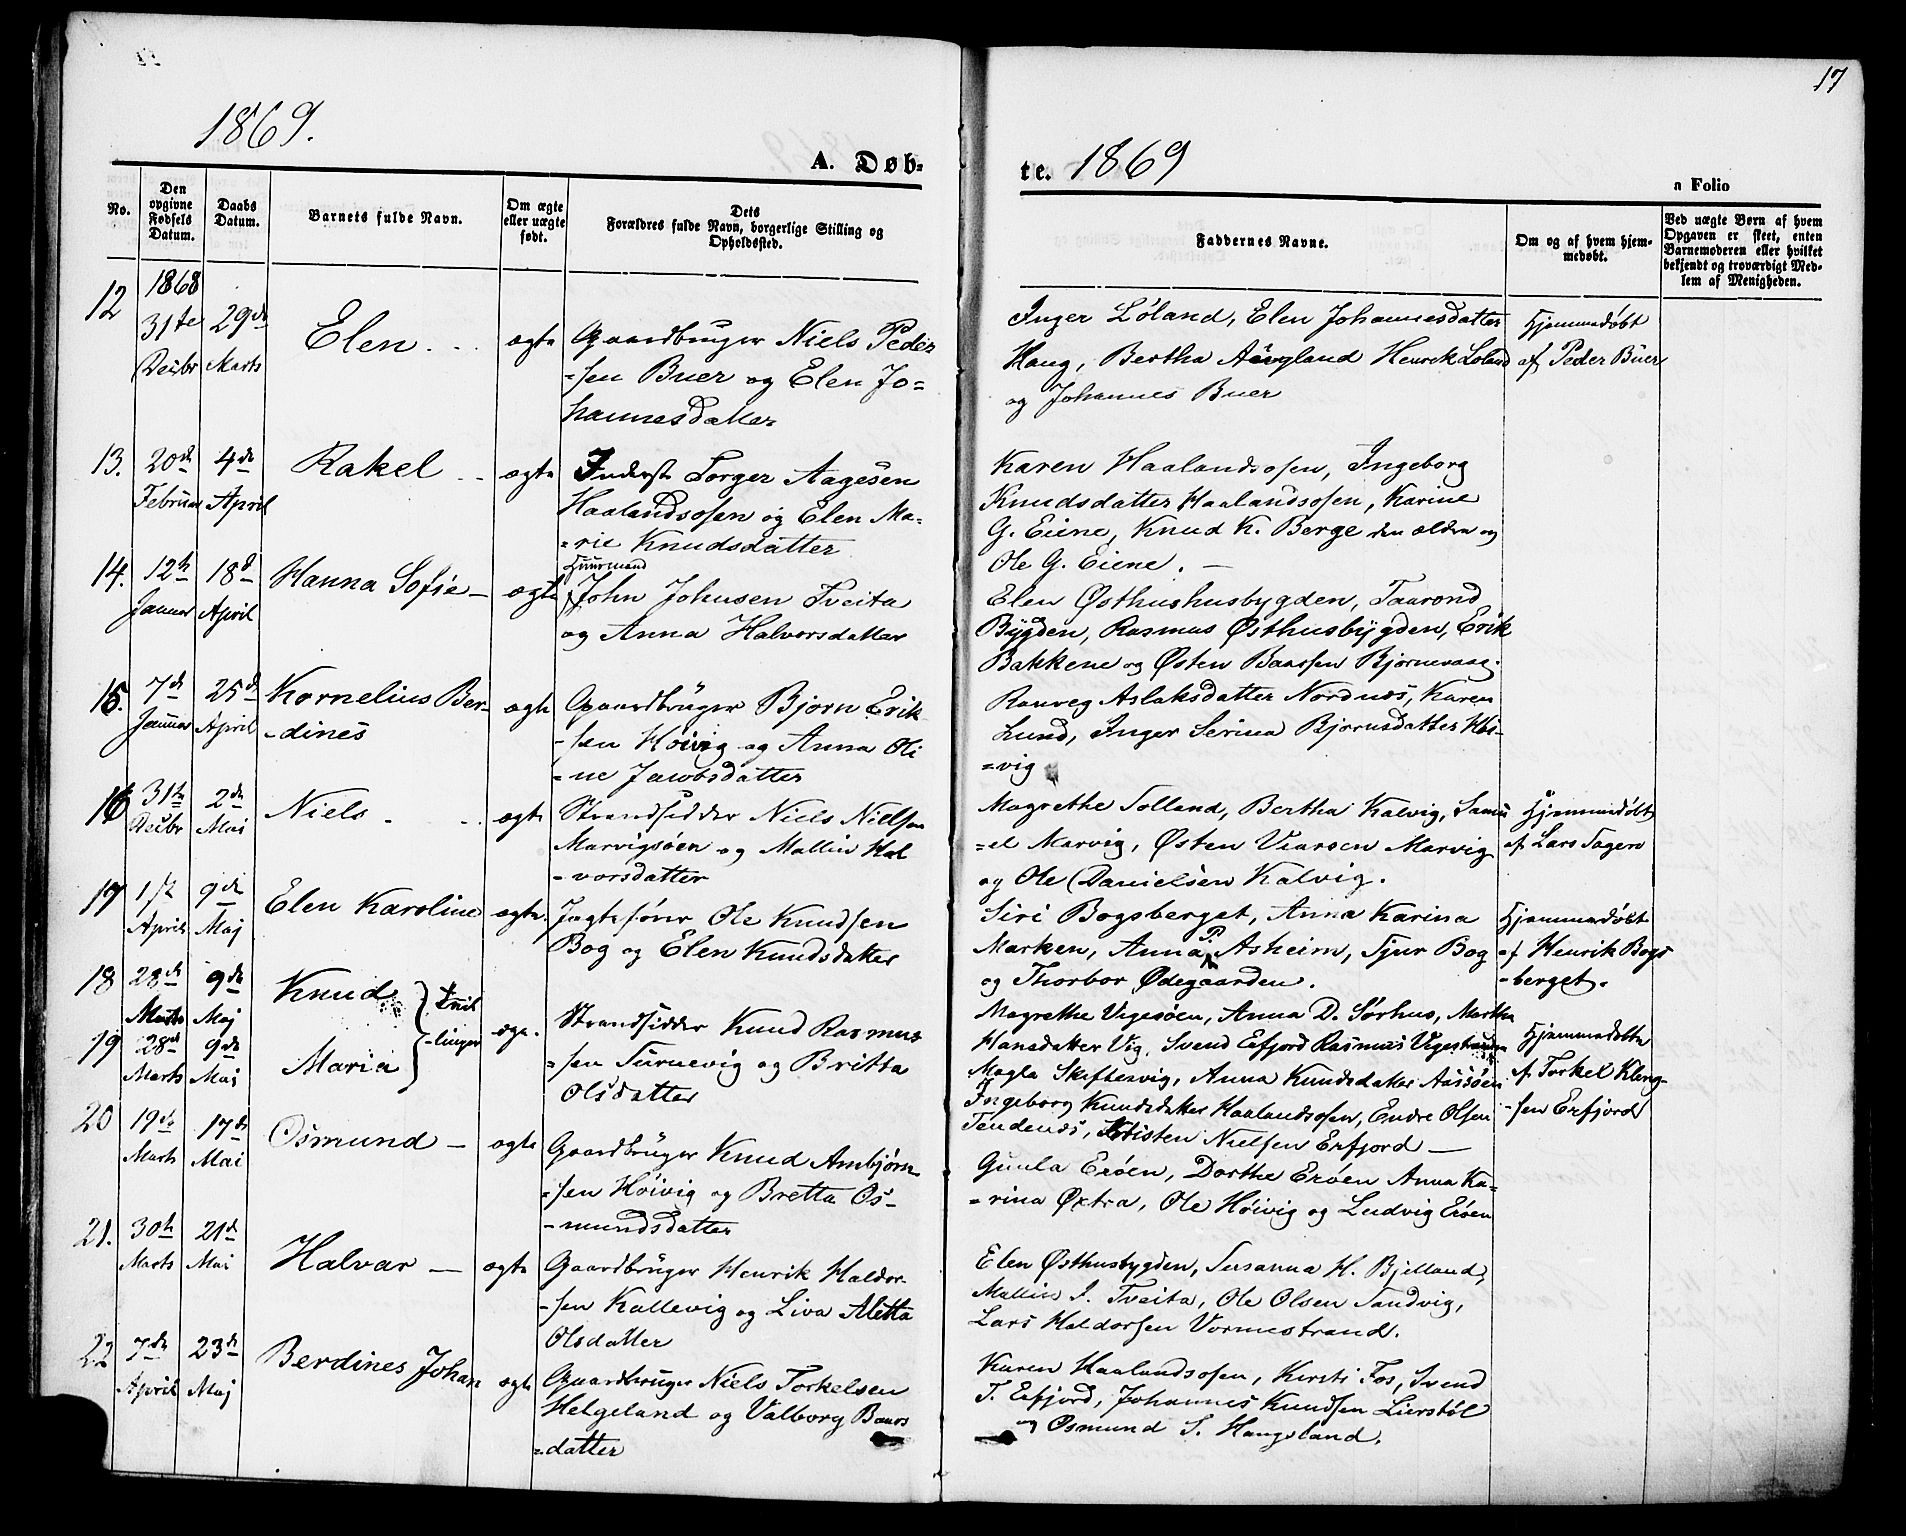 17
1869.
A. Døb-
te. 1869
n Folio
No.
Den opgivne Fødsels Datum.
Daabs Datum.
Barnets fulde Navn.
Om ægte eller uægte født.
Dets Forældres fulde Navn, borgerlige Stilling og Opholdssted.
Faddernes Navne.
Om og af hvem hjemmedøbt.
Ved uægte Børn af hvem Opgaven er skeet, enten Barnemoderen eller hvilket bekjendt og troværdigt Medlem af Menigheden.
12 1868 31te Decbr 29de Marts Elen ægte
Gaardbruger Niels Peder
-sen Buer og Elen Jo-
hannesdatter
Inger Löland, Elen Johannesdatter
Haug, Bertha Henrik Loland
og Johannes Buer
Hjemmedøbt
af Peder Buer
13. 20de Februar 4de April Rakel ægte
Inderst Torger Aagesen
Haalandsosen og Elen Ma-
-rie Knudsdatter
Karen Haalandsosen, Ingeborg
Knudsdatter Haalandsosen, Karine
G. Eiene, Knud K. Berge den ældre og
Ole G. Eiene.
14. 12te Januar 18de April Hanna Sofie ægte
Huusmand
John Johnsen Tveita
og Anna Halvorsdatter
Elen Østhushusbygden, Taarond
Bygden, Rasmus Østhusbygden, Erik
Bakkene og Østen Baarsen Bjornevaag.
15. 7de Januar 25de April Kornelius Ber-
-dines ægte
Gaardbruger Bjorn Erik
-sen Höivig og Anna Oli
-ne Jacobsdatter
Ranveg Aslaksdatter Nordnæs, Karen
Lund, Inger Serina Bjornsdatter Höi-
-vig
16 31te Decbr 2de Mai Niels ægte
Strandsidder Niels Nielsen
Marvigsöen og Mallin Hal
-vorsdatter
Magrethe Tolland, Bertha Kalvig, Samu
-el Marvig, Østen Viarsen Marvig
og Ole Danielsen Kalvig.
Hjemmedøbt
af Lars Fagero
17 1ste April 9de Maj Elen Karoline ægte
Jagtefører Ole Knudsen
Bog og Elen Knudsdatter
Siri Bogsberget, Anna Karina
Marken, Anna P. Asheim, Tjur Bog
og Thorbor Ødegaarden.
Hjemmedøbt
af Henrik Bogs
-berget.
18 28de Marts 9de Maj Knud
19 28de Marts 9de Mai Maria
Tvil
-linger ægte.
Strandsidder Knud Rasmus
-sen Turnevig og Britta
Olsdatter
Magrethe Vigesöen, Anna D. Sørhus, Martha
Hansdatter Vig, Svend Erfjord Rasmus Vigestranden
Magla Skiftesvig, Anna Knudsdatter Aassöen
Ingeborg Knudsdatter Haalandsosen, Endre Olsen
Tendenes, Kristen Nielsen Erfjord
Hjemmedøbte
af Torkel Kleng-
-sen Erfjord
20 19de Marts 17de Mai Osmund ægte
Gaardbruger Knud Ambjørn
-sen Höivig og Bretta Os-
-mundsdatter
Gunla Eröen, Dorthe Eröen Anna Ka-
-rina Øxtra, Ole Höivig og Ludvig Eröen
21. 30te Marts 21de Mai Halvar ægte
Gaardbruger Henrik Haldor-
-sen Kallevig og Liva Aletta
Olsdatter
Elen Østhusbygden, Susanna H. Bjelland,
Mallin J. Tveita, Ole Olsen Sandvig,
Lars Haldorsen Vormestrand.
22 7de April 23de Maj Berdines Johan ægte
Gaardbruger Niels Torkelsen
Helgeland og Valborg Baars
-datter
Karen Haalandsosen, Kirsti Fos, Svend
T. Erfjord, Johannes Knudsen Lierstöl
og Osmund S. Haugeland.